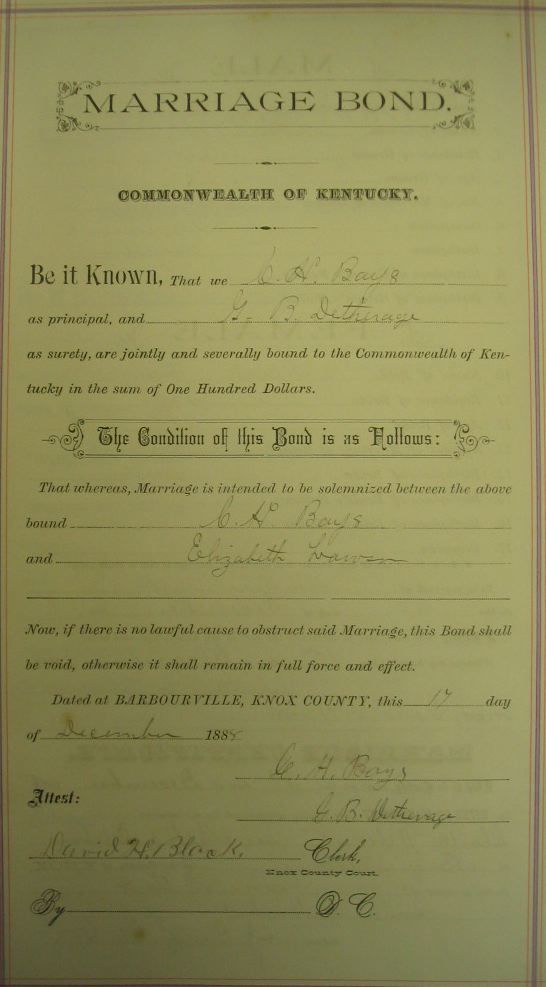 MARRIAGE BOND.
COMMONWEALTH OF KENTUCKY.
Be it Known, That we C. H. Bays
as principal, and G. B. Detherage
as surety, are jointly and severally bound to the Commonwealth of Ken-
tucky in the sum of One Hundred Dollars.
The Condition of this Bond is as Follows:
That whereas, Marriage is intended to be solemnized between the above
bound C. H. Bays
and Elizabeth Lawson
Now, if there is no lawful cause to obstruct said Marriage, this Bond shall
be void, otherwise it shall remain in full force and effect.
Dated at BARBOURVILLE, KNOX COUNTY, this 17 day
of December 1888
C. H. Bays
Attest:
G. B. Detherage
David H. Black, Clerk,
Knox County Court.
By D. C.